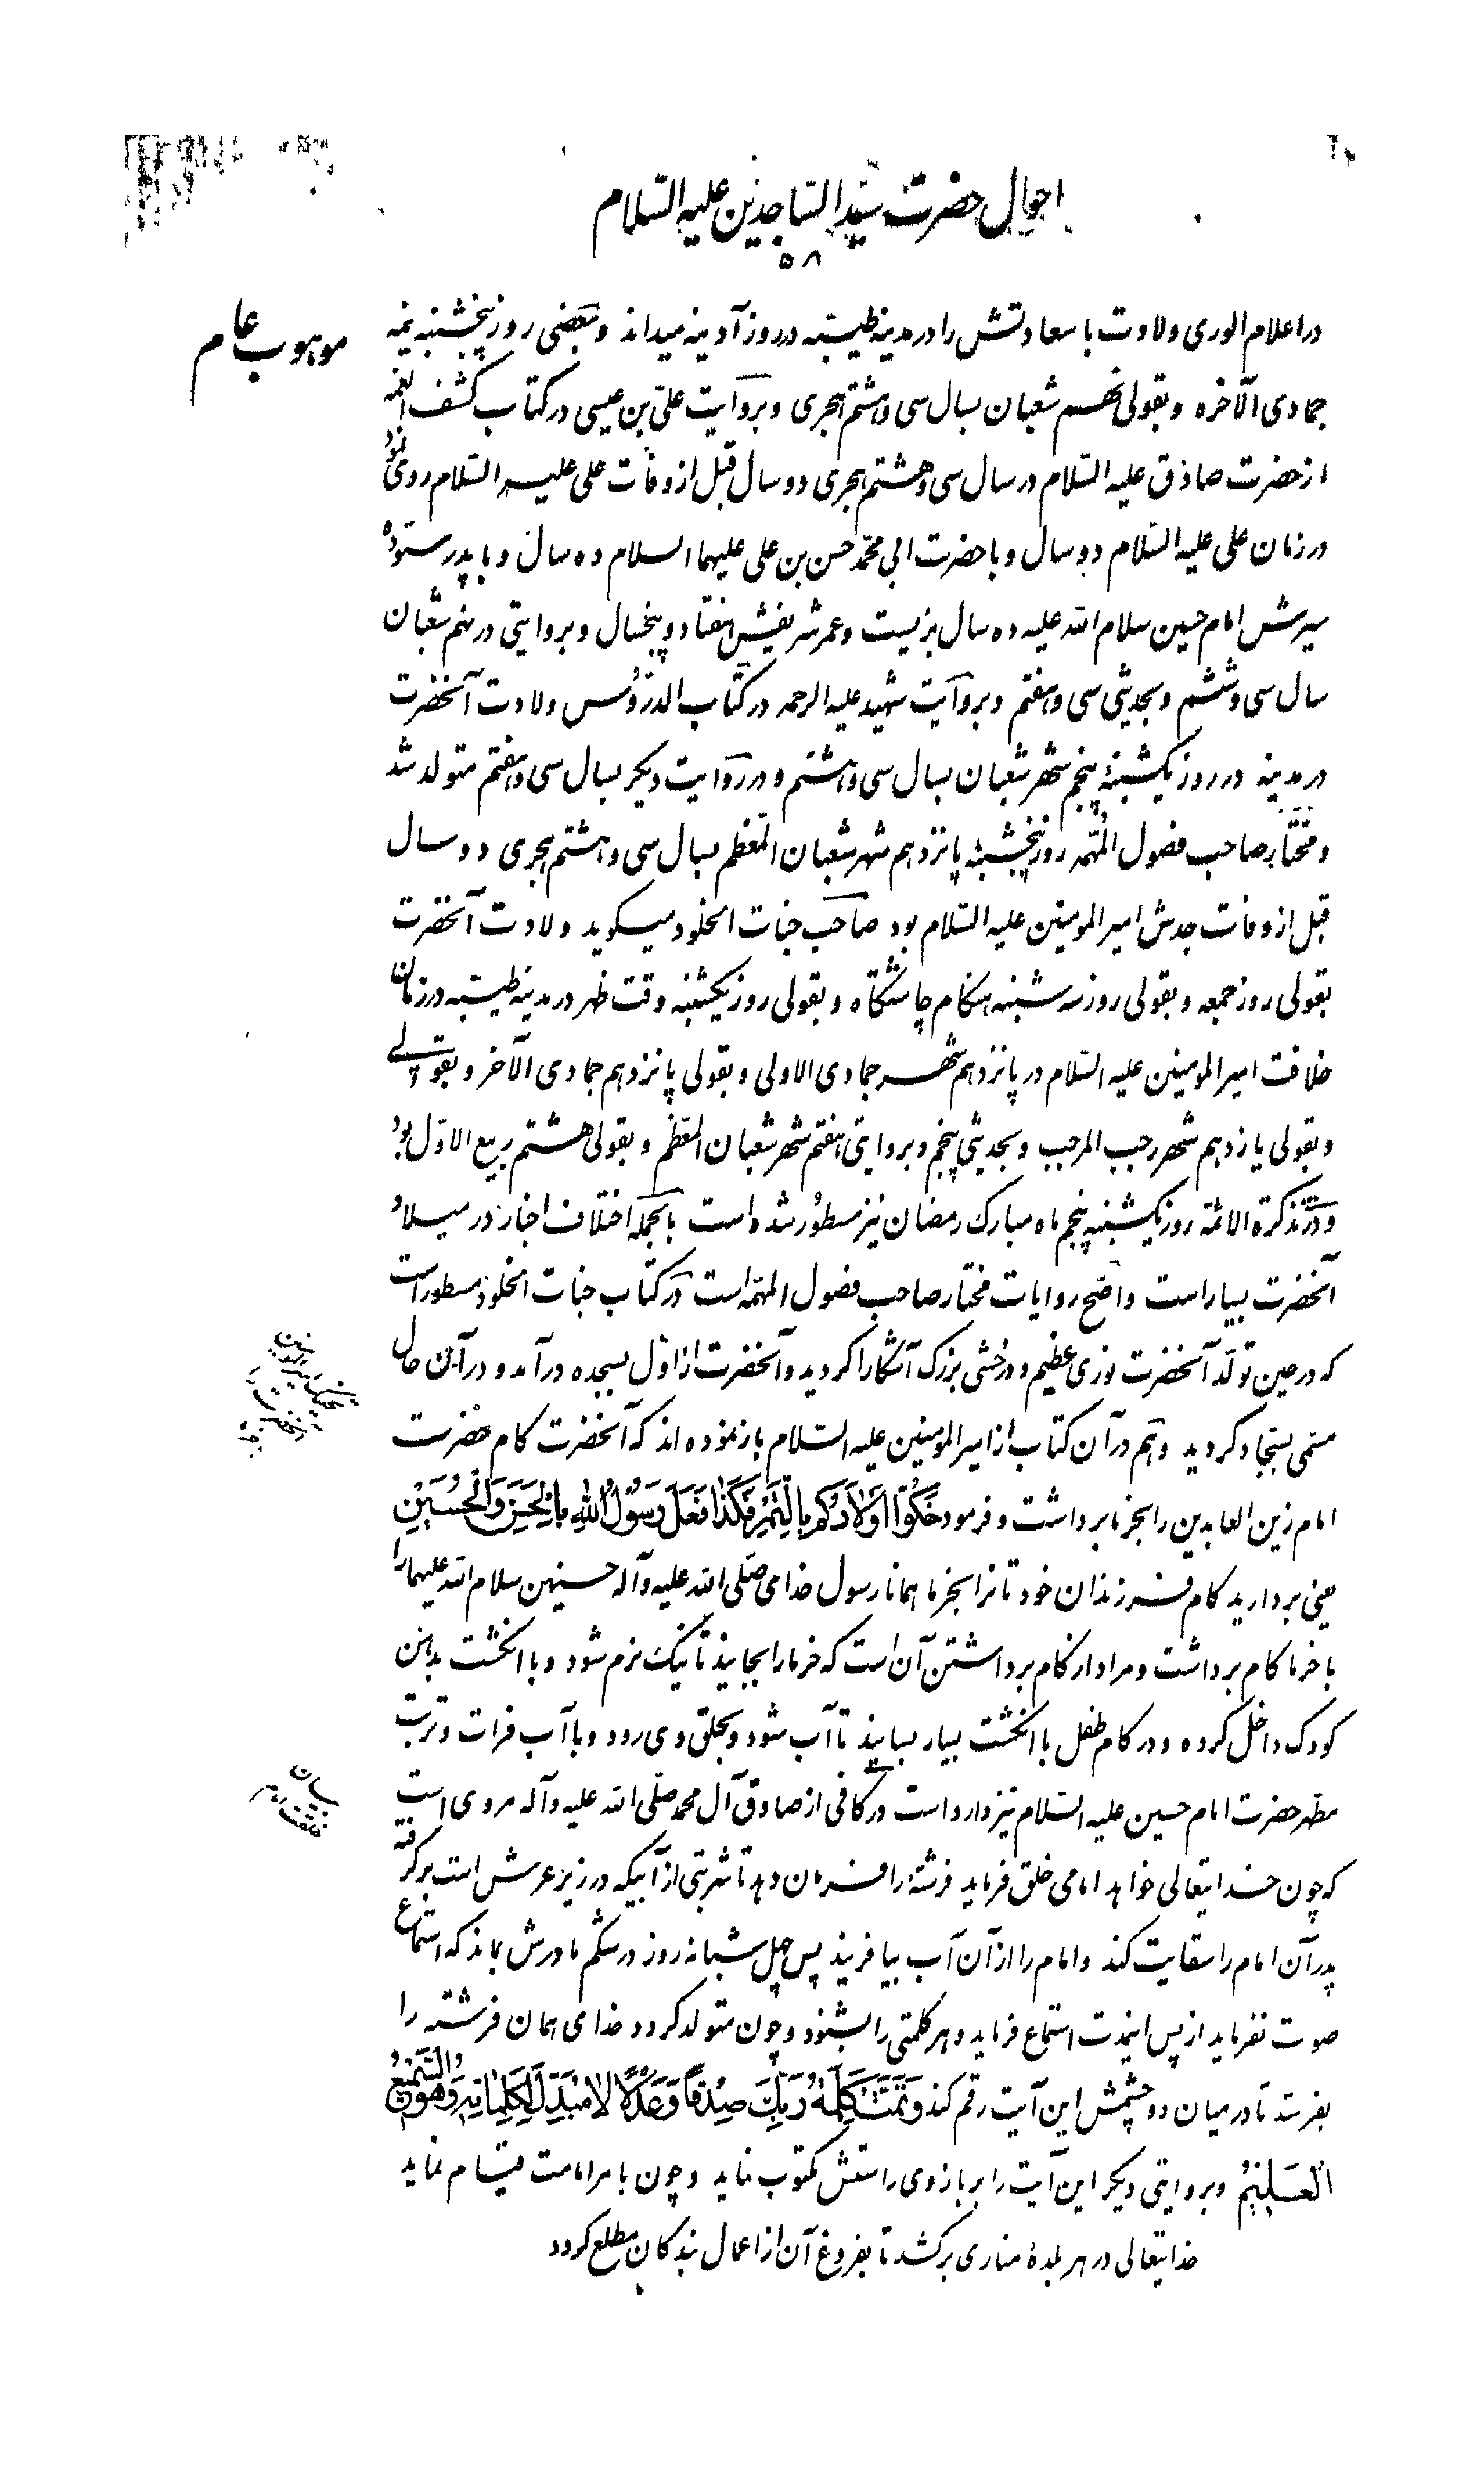 احوال حضرت سید الساجدین علیه السّلام
۵۸
موهوب عام
در اعلام الوری ولادت با سعادتش را در مدینه طیّبه در روز آدینه میداند و بعضی روز پنجشنبه نیمه
جمادی الآخره و بقولی نهم شعبان بسال سی و هشتم هجری و بروایت علیّ بن عیسی در کتاب کشف الغمه
از حضرت صادق علیه السّلام در سال سی و هشتم هجری دو سال قبل از وفات علی علیه السّلام روی نمود
در زمان علی علیه السّلام دو سال و با حضرت ابی محمّد حسن بن علی علیهما السلام ده سال و با پدر ستوده
سیرش امام حسین سلام الله علیه ده سال بزیست و عمر شریفش هفتاد و پنجسال و بروایتی در نهم شعبان
سال سی و ششم و بحدیثی سی و هفتم و بروایت شهید علیه الرحمه در کتاب الدّروس ولادت آنحضرت
در مدینه در روز یکشنبهٔ پنجم شهر شعبان بسال سی و هشتم و در روایت دیگر بسال سی و هفتم متولد شد
و مختار صاحب فصول المهمّه روز پنجشنبهٔ پانزدهم شهر شعبان المعّظم بسال سی و هشتم هجری دو سال
قبل از وفات جدش امیر المومنین علیه السّلام بود صاحب جنات الخلود میگوید ولادت آنحضرت
بقولی روز جمعه و بقولی روز سه شنبه هنگام چاشتگاه و بقولی روز یکشنبه وقت ظهر در مدینه طیّبه در زمان
خلافت امیر المومنین علیه السّلام در پانزدهم شهر جمادی الاولی و بقولی پانزدهم جمادی الآخر و بقولی
و بقولی یازدهم شهر رجب المرجب و بحدیثی پنجم و بروایتی هفتم شهر شعبان المعّظم و بقولی هشتم ربیع الاوّل بود
و در تذکرة الائمّه روز یکشنبه پنجم ماه مبارک رمضان نیز مسطور شده است بالجمله اختلاف اخبار در میلاد
آنحضرت بسیار است و اصّح روایات مختار صاحب فصول المهمّه است در کتاب جنات الخلود مسطور است
که در حین تولّد آنحضرت نوری عظیم و درخشی بزرگ آشکارا گردید و آنحضرت از اوّل بسجده در آمد و در آن حال
مسمی بسجاد گردید و هم در آن کتاب از امیر المومنین علیه السّلام باز نموده اند که آنحضرت کام حضرت
امام زین العابدین را بخرما برداشت و فرمود حَنِّکُوا اَوْلادَکُم بِالتَّمْرِ فَکَذا فَعَلَ رَسُولُ اللهِ بِالْحَسَنِ وَالْحُسَیْنِ
یعنی بردارید کام فرزندان خود تانرا بخرما همانا رسول خدای صلّی الله علیه و آله حسنین سلام الله علیهما را
با خرما کام برداشت و مراد از کام برداشتن آن است که خرما را بجایند تا نیک نرم شود و با انگشت بدهن
کودک داخل کرده و در کام طفل با انگشت بسیار بسایند تا آب شود و بحلق وی رود و با آب فرات و تربت
مطهر حضرت امام حسین علیه السّلام نیز وارد است در کافی از صادق آل محمد صلّی الله علیه و آله مروی است
که چون خدایتعالی خواهد امامی خلق فرماید فرشتهٔ را فرمان دهد تا شربتی از آبیکه در زیر عرش است برگرفته
پدر آن امام را سقایت کند و امام را از آن آب بیافریند پس چهل شبانه روز در شکم مادرش بماند که استماع
صوت نفرماید از پس اینمدت استماع فرماید و هر کلمتی را بشنود و چون متولد گردد خدای همان فرشته را
بفرستد تا در میان دو چشمش این آیت رقم کند وَتَمَّتْ کَلِمَةُ رَبِّکَ صِدْقاً وَعَدْلاً لا مُبَدِّلَ لِکَلِماتِهِ وَهُوَ السَّمیعُ
الْعَلِیْمُ و بروایتی دیگر این آیت را بر بازوی راستش مکتوب نماید و چون بامر امامت قیام نماید
خدایتعالی در هر بلدهٔ مناری برکشد تا بفروغ آن از اعمال بندگان مطلع گردد
بیان
خلقت امام